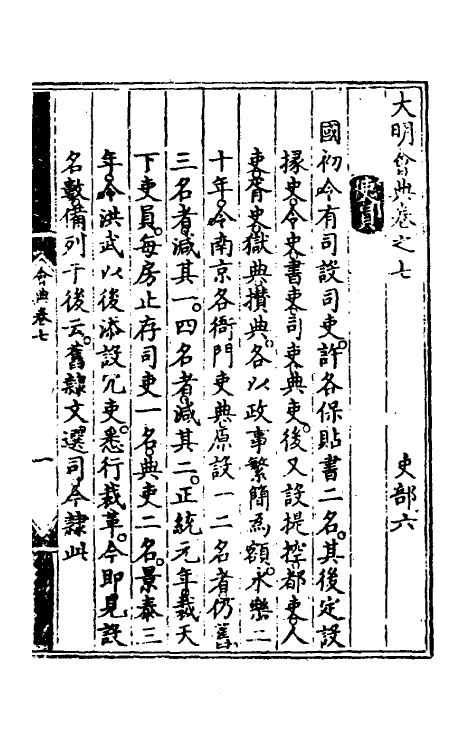 大明會典卷之七
吏部六
吏員
國初令有司設司吏許各保貼書二名其後定設
掾吏令史書吏司吏典吏後又設提控都吏人
吏胥史獄典攢典各以政事繁簡為額永樂二
十年令南京各衙門吏典原設一二名者仍舊
三名者減其一四名者減其二正統元年裁天
下吏員每房止存司吏一名典吏二名景泰三
年令洪武以後添設冗吏悉行裁革今即見設
名數備列于後云舊隸文選司今隸此
會典卷七
一